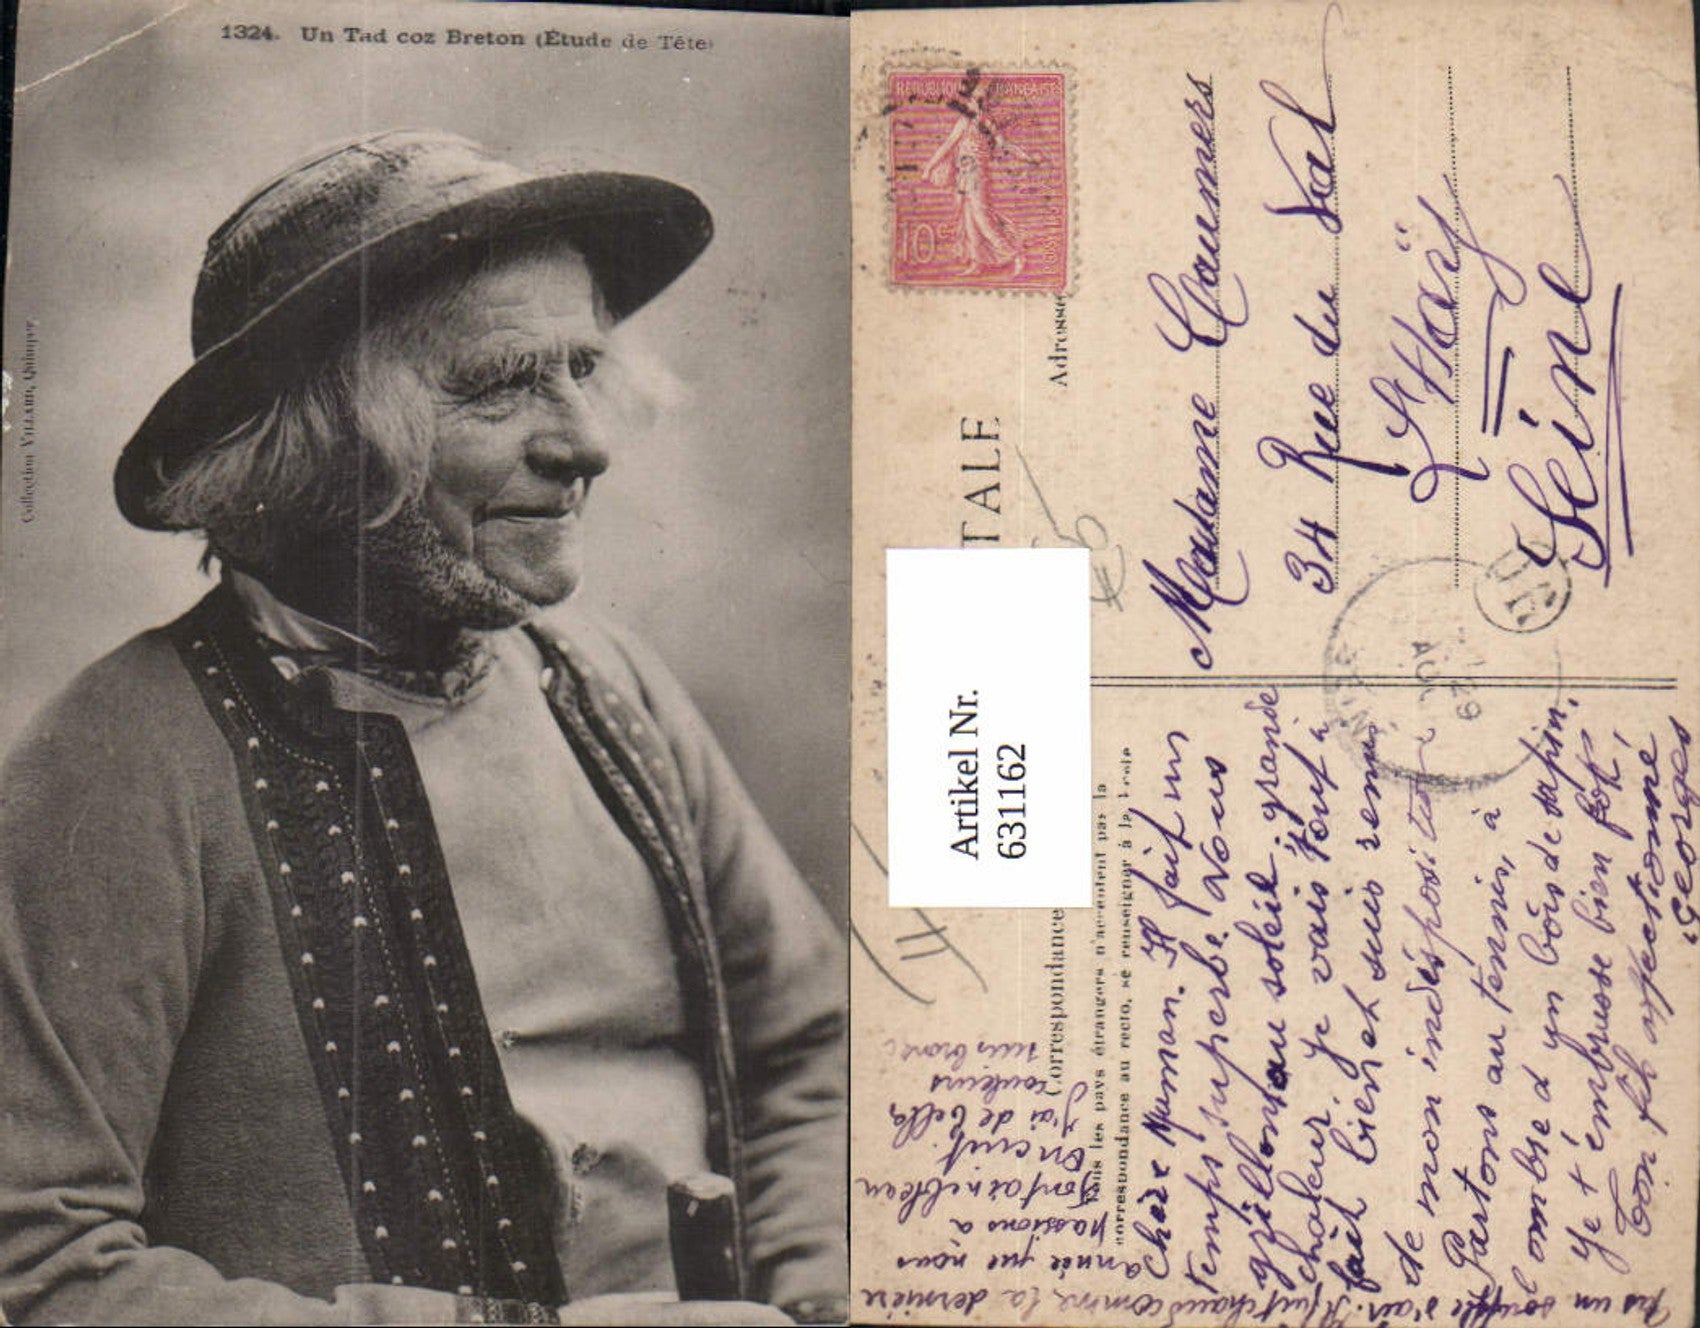 1324. Un Tad coz Breton (Étude de Tête)
Collection VILLARD, Quimper
REPUBLIQUE FRANÇAISE
10c
POSTES
TALE
Adresse
Artikel Nr.
631162
Correspondance
Tous les pays étrangers n'acceptent pas la
correspondance au recto, se renseigner à la Poste
Madame
34 Rue du Val
Seine
1929
Chère Maman. Il fait un
temps superbe. Nous
grillons au soleil, grande
chaleur, je vais tout à
fait bien et suis remis
de mon indisposition
Partons au tennis, à
l'ombre d'un bois de sapin.
Je t'embrasse bien fort,
Ton fils affectionné
Georges
Pas un souffle d'air. Il fait chaud comme la dernière
année que nous
passions à
Fontainebleau
On cuit.
J'ai de belles
couleurs